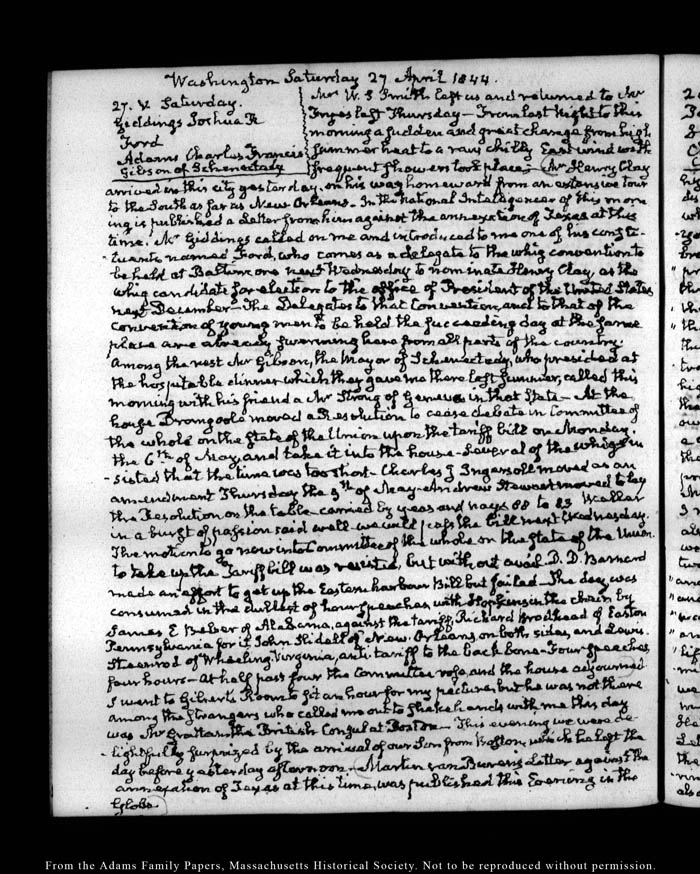 Washington Saturday 27 April 1844.
27. V. Saturday.
Giddings Joshua R
Ford
Adams Charles Francis
Gibson of Schenectady
Mr W. S Smith left us and returned to Mr
last Thursday — From last Night to this
morning a sudden and great change from high
summer heat to a raw chilly East wind with
frequent showers took place. Mr Henry Clay
arrived in this city yesterday, on his way homeward from an extensive tour
to the South as far as New Orleans. In the National Intelligencer of this morn
ing is published a Letter from him against the annexation of Texas at this
time. Mr Giddings called on me and introduced to me one of his consti-
tuents named Ford, who comes as a delegate to the whig convention to
be held at Baltimore next Wednesday to nominate Henry Clay as the
whig candidate for election to the office of President of the United States
next December — The Delegates to that Convention, and to that of the
convention of young men to be held the succeeding day at the same
place are already swarming here from all parts of the country.
Among the rest Mr Gibson, the Mayor of Schenectady, who presided at
the hospitable dinner which they gave me there last summer, called this
morning with his friend a Mr Strong of Geneva in that State — At the
house Dromgoole moved a Resolution to cease debate in Committee of
the whole on the state of the Union upon the tariff bill on Monday.
the 6th of May, and take it into the house — Several of the whigs in
-sisted that the time was too short — Charles J Ingersoll moved as an
amendment Thursday the 9th of May — Andrew Stewart moved to lay
the Resolution on the table — carried by yeas and nays 88 to 83 Weller
in a burst of passion said well we will pass the bill next Wednesday.
The motion to go now into Committee of the whole on the state of the Union
to take up the Tariff bill was resisted, but without avail. D. D. Barnard
made an effort to get up the Eastern harbour Bill but failed — The day was
consumed in the dullest of hour speeches, with Hopkins in the chair by
James E Belser of Alabama, against the tariff, Richard Brodhead of Easton
Pennsylvania for it, John Slidell of New. Orleans, on both sides, and Lewis
Steenrod of Wheeling Virginia, anti. tariff to the back bone — Four speeches,
four hours — At half past four the Committee rose, and the house adjourned
I went to Gilbert's Room to sit an hour for my picture, but he was not there
Among the strangers who called me out to shake hands with me this day
was Mr Grattan the British Consul at Boston — This evening we were de-
lightfully surprized by the arrival of our Son from Boston, which he left the
day before yesterday afternoon — Martin van Buren's Letter against the
annexation of Texas at this time, was published this Evening in the
Globe.
From the Adams Family Papers, Massachusetts Historical Society. Not to be reproduced without permission.